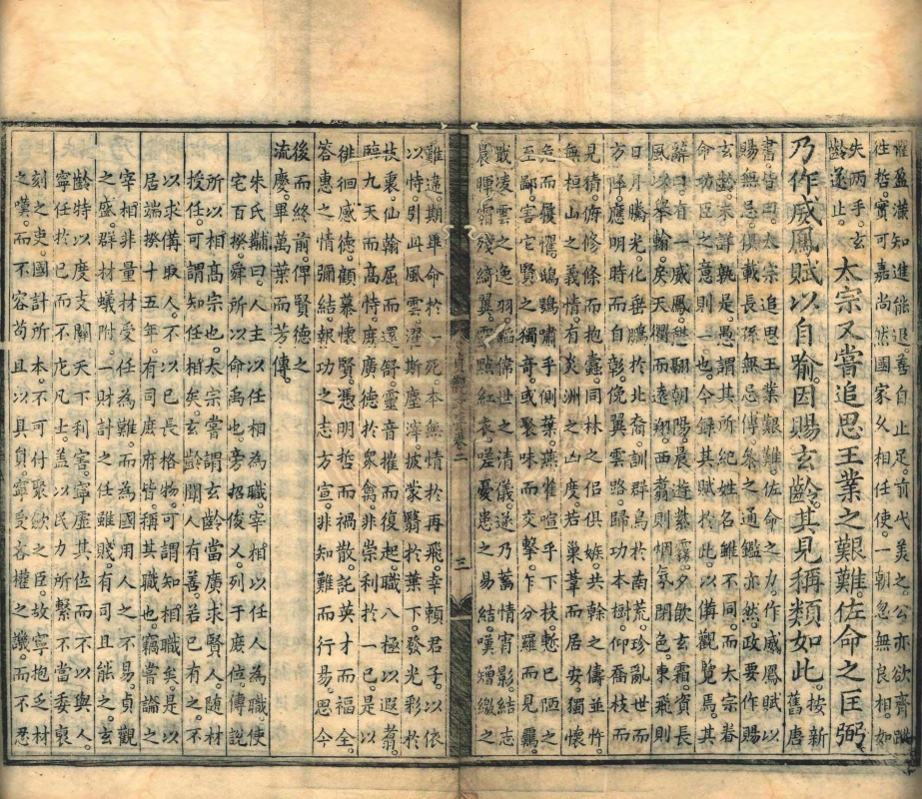 惟盈滿知進能退善自止足前代美公亦欲齊蹤
往哲實可嘉尚然國家久相任使一朝忽無良相如
失兩手玄齡遂止太宗又嘗追思王業之艱難佐命之匡弼
乃作威鳳賦以自喻因賜玄齡其見稱類如此按新舊唐
書皆曰太宗追思王業艱難佐命之力作威鳳賦以
賜無忌俱載長孫無忌傳叅之通鑑亦然政要作賜
玄齡未詳孰是愚謂其所賜姓名雖不同而太宗眷
命功臣之意則一也今録其賦於此以備觀覽焉其
辭曰有一威鳳憩翮朝陽晨遊紫霧夕飲玄霜資長
風以舉翰戾天衢而遠翔西翥則烟氛閉色東飛則
日月騰光化垂鵬於北裔訓群鳥於南荒弭亂世而
方降應明時而自彰俛翼雲路歸功本樹仰喬枝而
見猜俯修條而抱蠹同林之侶俱嫉共幹之儔並忤
無桓山之義情有炎洲之凶度若巢葦而居安獨懷
危而履懼鴟鴞嘯乎側葉燕雀喧乎下枝慙己陋之
至鄙害它賢之獨奇或聚味而交擊乍分羅而見羈
戢凌雲之逸羽韜偉世之清儀遂乃蓄情宵影結志
晨暉霜殘綺翼露點紅衣嗟憂患之易結嘆矰繳之
卷二
三
難違期畢命於一死本無情於再飛幸賴君子以依
以恃引此風雲濯斯塵滓披蒙翳於葉下發光彩於
枝裏仙翰屈而還舒靈音摧而復起職八極以遐翥
臨九天而高峙庶廣德於衆禽非崇利於一己是以
徘徊感德顧慕懷賢憑明哲而禍散託英才而福全
答惠之情彌結報功之志方宣非知難而行易思令
後而終前俾賢德之
流慶畢萬葉而芳傳
朱氏黼曰人主以任相為職宰相以任人為職使
宅百揆舜所以命禹也旁招俊乂列于庶位傅說
所以相高宗也太宗嘗謂玄齡當廣求賢人隨材
授任可謂知任相矣玄齡聞人有善若己有之不
以求備取人不以已長格物可謂知相職矣是以
居端揆十五年有司庶府皆稱其職也竊嘗論之
宰相非量材受任為難而為國用人之不易貞觀
之盛群材蟻附一財計之賤有司且能之玄
齡特以度支關天下利害寧虛其位而不以與人
寧任於己而不庀凡士蓋以民力所繫不當委裒
刻之吏國計所本不可付聚歛之臣故寧抱乏材
之嘆而不容苟且以具員寧受吝權之譏而不忍